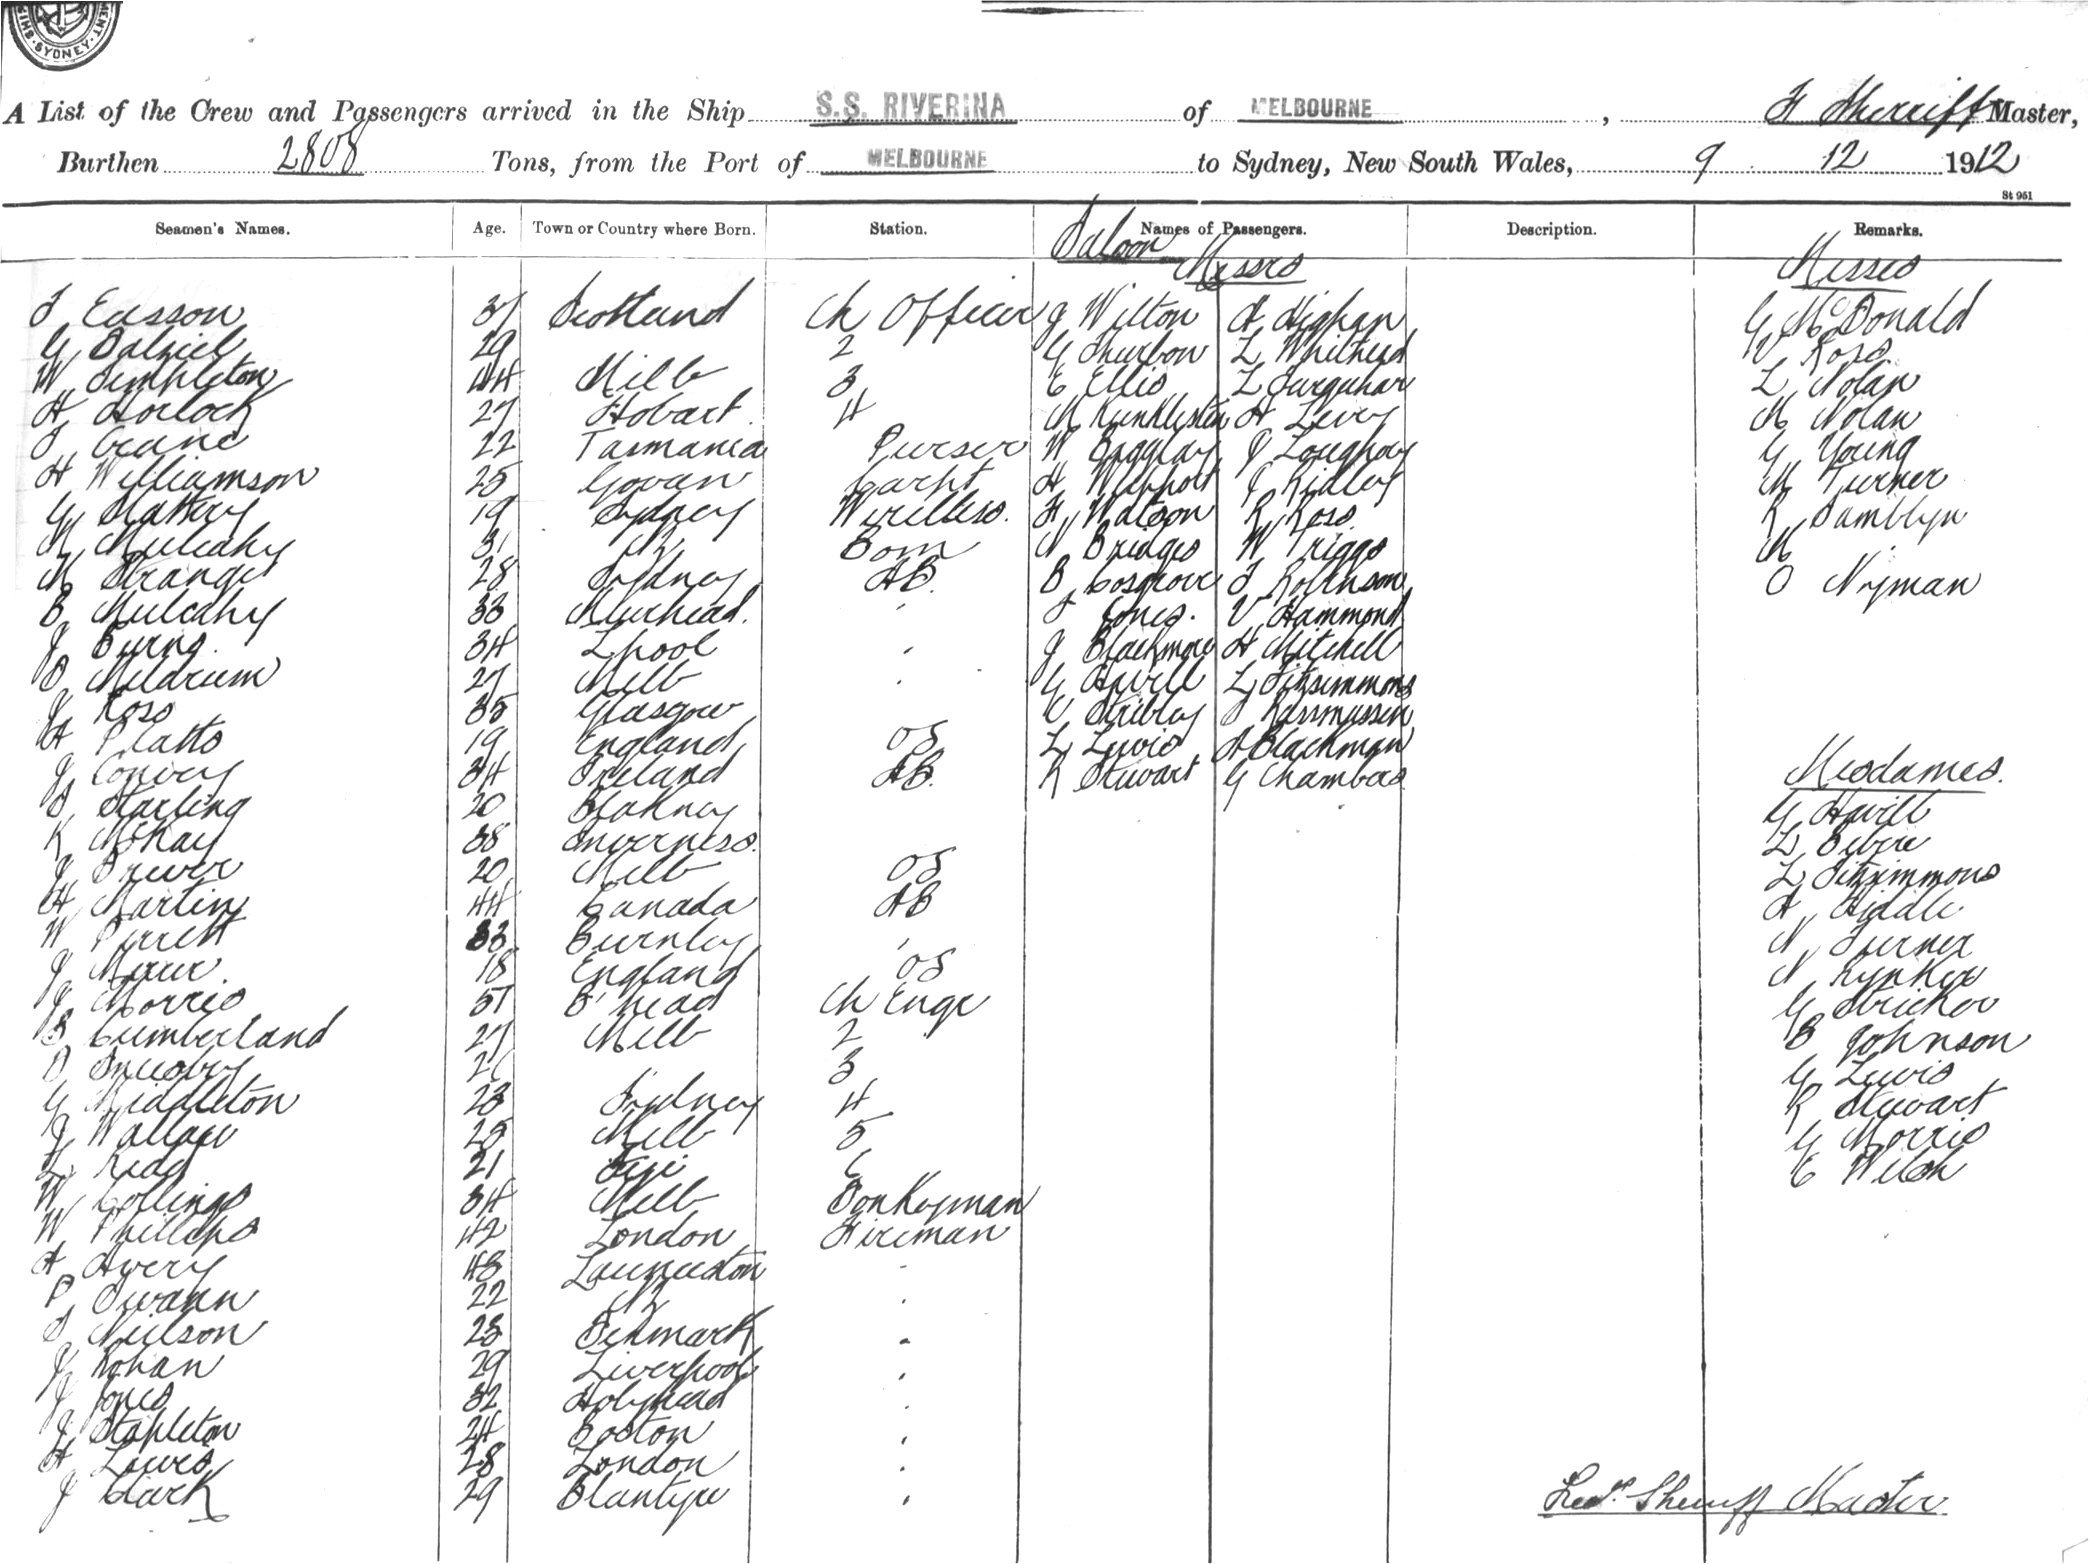 SYDNEY
A List of the Crew and Passengers arrived in the Ship S.S. RIVERINA of MELBOURNE, F Sherriff Master,
Burthen 2808 Tons, from the Port of MELBOURNE to Sydney, New South Wales, 9 12 1912
St 951
Seamen's Names. Age. Town or Country where Born. Station. Names of Passengers. Description. Remarks.
Saloon
Messrs Misses
Easson 37 Scotland Ch Officer J Wilton A Higham G McDonald
G Dalziel 29 2 G Thurbon L Whithead V Ross
W Templeton 44 Melb 3 E Ellis L Farquhar L Nolan
H Horlock 27 Hobart 4 M H Levy M Nolan
22 Tasmania Purser W Loughby G Young
H Williamson 25 Govan Carpt H J Ridley M Turner
G Slattery 19 Sydney Wireless. H Watson R Ross R Damblyn
M Mulcahy 31 NZ Bosn N Bridges W Triggs M
M Strange 28 Sydney AB. B Cosgrove J Robinson O Nyman
B Mulcahy 33 Muirhead. Jones. V Hammond
J Burns. 34 Lpool J Blackmore H Mitchell
D Meldrum 27 Melb G Havill L Fitzsimmons
J Ross 35 Glasgow C Stribley J Rassmussen
H Platts 19 England OS L Lewis A Blackman
J Convey 34 Ireland AB. R Stewart G Chambers Mesdames.
Starling 20 Blakney G Havill
R McKay 38 Inverness. L
J Brewer 20 Melb OS L Fitzsimmons
H Martin 44 Canada AB A
W Perrett 33 Burnley N Turner
J 18 England OS N
J Morris 57 B'head Ch Engr G Stricker
B Cumberland 27 Melb 2 B Johnson
21 3 G Lewis
G Middleton 23 Sydney 4 R Stewart
J Wallace 25 Melb 5 G Morris
L 21 Fiji 6 E Welsh
W Collings 34 Melb Donkeyman
W Phillips 42 London Fireman
A Avery 43 Launceston
P Swann 22 NZ
Neilson 23 Denmark
J Rohan 29 Liverpool
J Jones 32 Holyhead
J Stapleton 24 Boston
H Lewis 28 London
J Clark 29 Blantyre
Fred. Sherriff Master